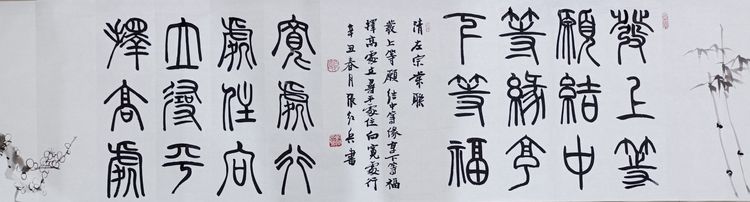 發上等
願結中
等緣享
下等福
清左宗棠聯
發上等願結中等緣享下等福
擇高處立尋平處住向寬處行
辛丑春月張紅兵書
擇高處
立尋平
處住向
寬處行